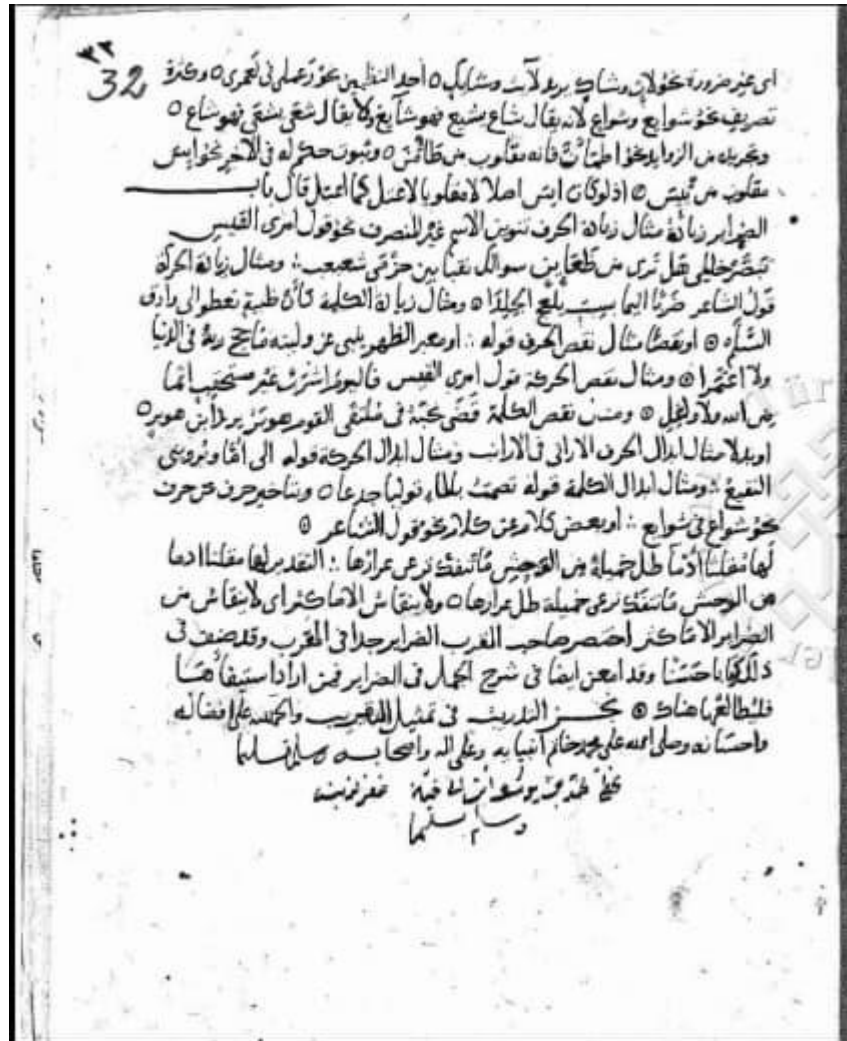 ٣٢
32
اى غير ضرورة نحو لاثٍ وشاكٍ يريد لائث وشايك ٥ احد النظمين نحو رَعَملى فى لعمرى ٥ وكثرة
تصريف نحو شوايع وشواعٍ لانه يقال شاع يشيع فهو شايع ولا يقال شعى يشعى فهو شاع ٥
وتجريده من الزوايد نحو اطمأنّ فانه مقلوب من طَأْمَنَ ٥ وثبوت حكم له فى الآخر نحو ايس
مقلوب من يَئِسَ ٥ اذ لو كان ايس اصلا لا مقلوبا لاعتل كما اعتل قال باب
الضراير زيادة مثال زيادة الحرف تنوين الاسم غير المنصرف نحو قول امرى القيس
تبصّر خليلى هل ترى من ظعاين سوالك نقبا بين حزمى شعبعب ؞ ومثال زيادة الحركة
قول الشاعر ضربًا اليما بسبت يلعج الجِلِدا ٥ ومثال زيادة الكلمة كأن ظبية تعطو الى وارق
السَّلَم ٥ او نقصًا مثال نقص الحرف قوله ؞ او معبر الظهر ينبى عن وليته ما حج ربه فى الدنيا
ولا اعتمرا ٥ ومثال نقص الحركة قول امرى القيس فاليوم اشربْ غير مستحقب اثما
من الله ولا واغل ٥ ومثل نقص الكلمة قضى نحبَه فى ملتقى القوم هوبر يريد ابن هوبر ٥
او بدلا مثال ابدال الحرف الارانى فى الارانب ومثال ابدال الحركة قوله الى امّا ويُروينى
النقيع ؞ ومثال ابدال الكلمة قوله تصمت بالماء تولبا جدعا ٥ وتاخير حرف عن حرف
نحو شواع فى شوايع ؞ او بعض كلام عن كلام نحو قول الشاعر ٥
لها مقلتا ادما طل خميلة من الوحش ما تنفك ترعى عرارها ؞ التقدير لها مقلتا ادما
من الوحش ما تنفك ترعى خميلة طل عرارها ٥ ولا ينقاس الا ما كثر اى لا ينقاس من
الضراير الا ما كثر اختصر صاحب المقرب الضراير جدا فى المقرب وقد صنف فى
ذلك كتابا حسنا وقد امعن ايضا فى شرح الجمل فى الضراير فمن اراد استيفاهها
فليطالعها هناك ٥ نجز التدريب فى تمثيل التقريب والحمد لله على افضاله
واحسانه وصلى الله على محمد خاتم انبيايه وعلى اله واصحابه وسلم تسليما
وسلم تسليما